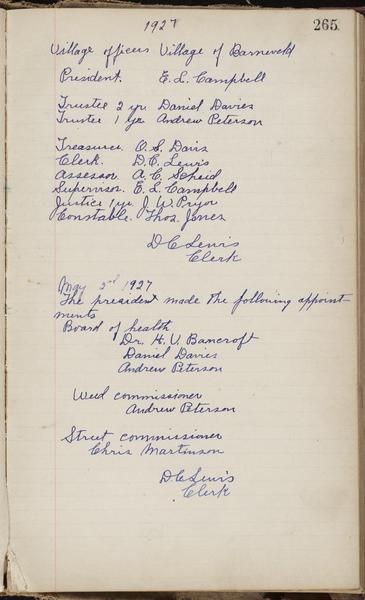 265
1927
Village officers Village of Barneveld
President. E. L. Campbell
Trustee 2 yr Daniel Davies
Trustee 1 yr Andrew Peterson
Treasurer. O. S. Davis
Clerk. D. C. Lewis
Assessor A. C. Scheid
Supervisor. E. L. Campbell
Justice 1 yr. J. W. Pryor
Constable. Thos. Jones
D C Lewis
Clerk
May 5d 1927
The president made the following appoint
ments
Board of health
Dr. H. V. Bancroft
Daniel Davies
Andrew Peterson
Weed commissioner
Andrew Peterson
Street commissioner
Chris Martinson
D C Lewis
Clerk